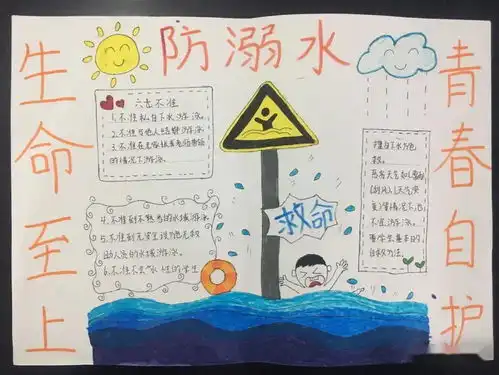 防溺水
生命至上
青春自护
六击不准
1.不准私自下水游泳
2.不准与他人结伴游泳
3.不准在无家长或老师带领
的情况下游泳
4.不准到不熟悉的水域游泳
5.不准到无安全设施无救
助人员的水域游泳
6.不准不会水性的学生
救命
恶劣天气如
不宜游泳
自救方法